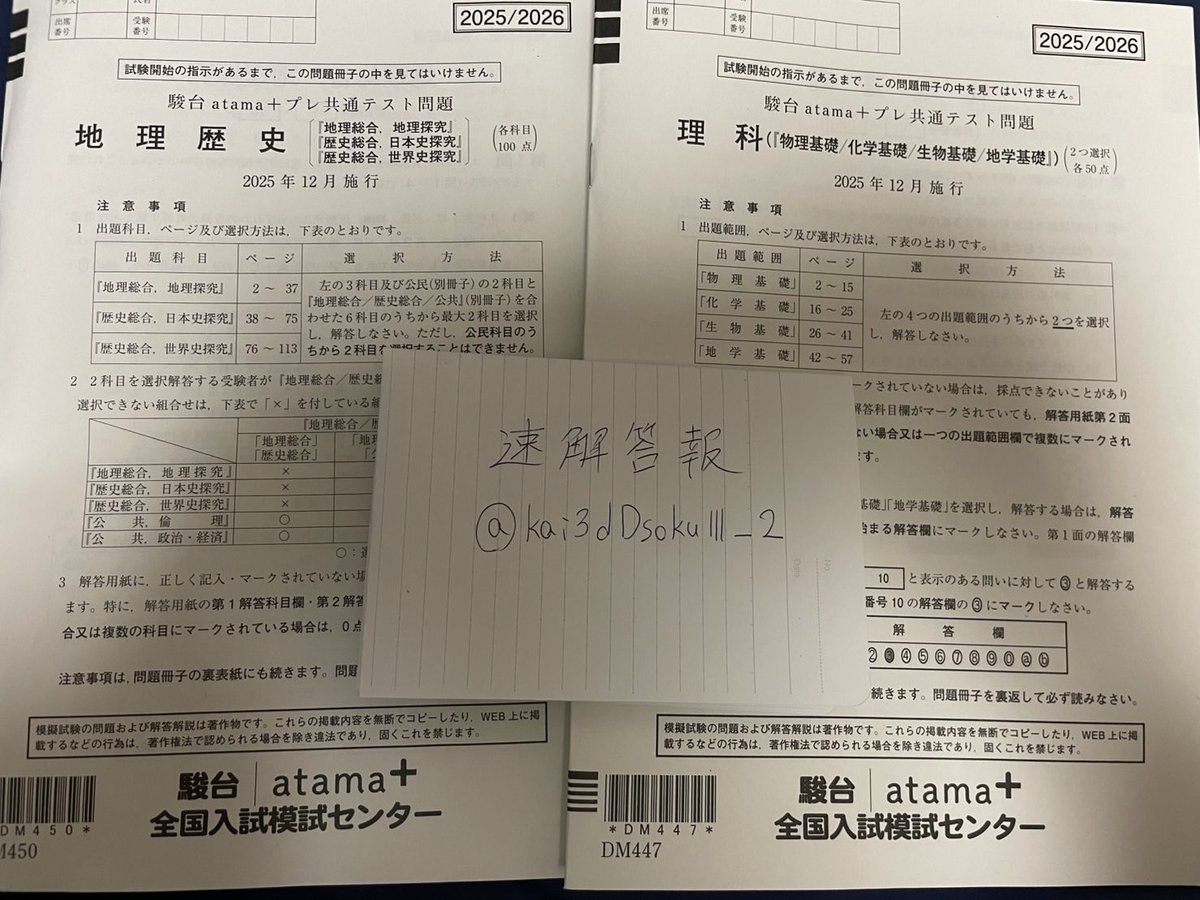 クラス
氏名
出席番号
受験番号
2025/2026
試験開始の指示があるまで，この問題冊子の中を見てはいけません。
駿台 atama＋プレ共通テスト問題
地理歴史
『地理総合，地理探究』
『歴史総合，日本史探究』
『歴史総合，世界史探究』
各科目
100点
2025年12月施行
注意事項
1 出題科目，ページ及び選択方法は，下表のとおりです。
出題科目 ページ 選択方法
『地理総合，地理探究』 2～37
『歴史総合，日本史探究』 38～75
『歴史総合，世界史探究』 76～113
左の3科目及び公民(別冊子)の2科目と
『地理総合／歴史総合／公共』(別冊子)を合
わせた6科目のうちから最大2科目を選択
し，解答しなさい。ただし，公民科目のう
ちから2科目を選択することはできません。
2 2科目を選択解答する受験者が『地理総合／歴史総
選択できない組合せは，下表で「×」を付している組
『地理総合／歴
「地理総合」
「歴史総合」
「地理
『地理総合，地理探究』 ×
『歴史総合，日本史探究』 ×
『歴史総合，世界史探究』 ×
『公共，倫理』 ○
『公共，政治・経済』 ○
○：選
3 解答用紙に，正しく記入・マークされていない場
ます。特に，解答用紙の第1解答科目欄・第2解答
合又は複数の科目にマークされている場合は，0点
注意事項は，問題冊子の裏表紙にも続きます。問題
模擬試験の問題および解答解説は著作物です。これらの掲載内容を無断でコピーしたり，WEB上に掲
載するなどの行為は，著作権法で認められる場合を除き違法であり，固くこれを禁じます。
駿台 atama＋
全国入試模試センター
DM450*
M450
出席番号
受験番号
2025/2026
試験開始の指示があるまで，この問題冊子の中を見てはいけません。
駿台 atama＋プレ共通テスト問題
理科(『物理基礎/化学基礎/生物基礎/地学基礎』)
2つ選択
各50点
2025年12月施行
注意事項
1 出題範囲，ページ及び選択方法は，下表のとおりです。
出題範囲 ページ 選択方法
「物理基礎」 2～15
「化学基礎」 16～25
「生物基礎」 26～41
「地学基礎」 42～57
左の4つの出題範囲のうちから2つを選択
し，解答しなさい。
ークされていない場合は，採点できないことがあり
解答科目欄がマークされていても，解答用紙第2面
ない場合又は一つの出題範囲欄で複数にマークされ
ます。
基礎」「地学基礎」を選択し，解答する場合は，解答
始まる解答欄にマークしなさい。第1面の解答欄
10 と表示のある問いに対して③と解答する
番号10の解答欄の③にマークしなさい。
解答欄
②③④⑤⑥⑦⑧⑨⓪ⓐⓑ
続きます。問題冊子を裏返して必ず読みなさい。
模擬試験の問題および解答解説は著作物です。これらの掲載内容を無断でコピーしたり，WEB上に掲
載するなどの行為は，著作権法で認められる場合を除き違法であり，固くこれを禁じます。
駿台 atama＋
全国入試模試センター
*DM447*
DM447
速解答報
@kai3dDsokulll_2
No.
Date